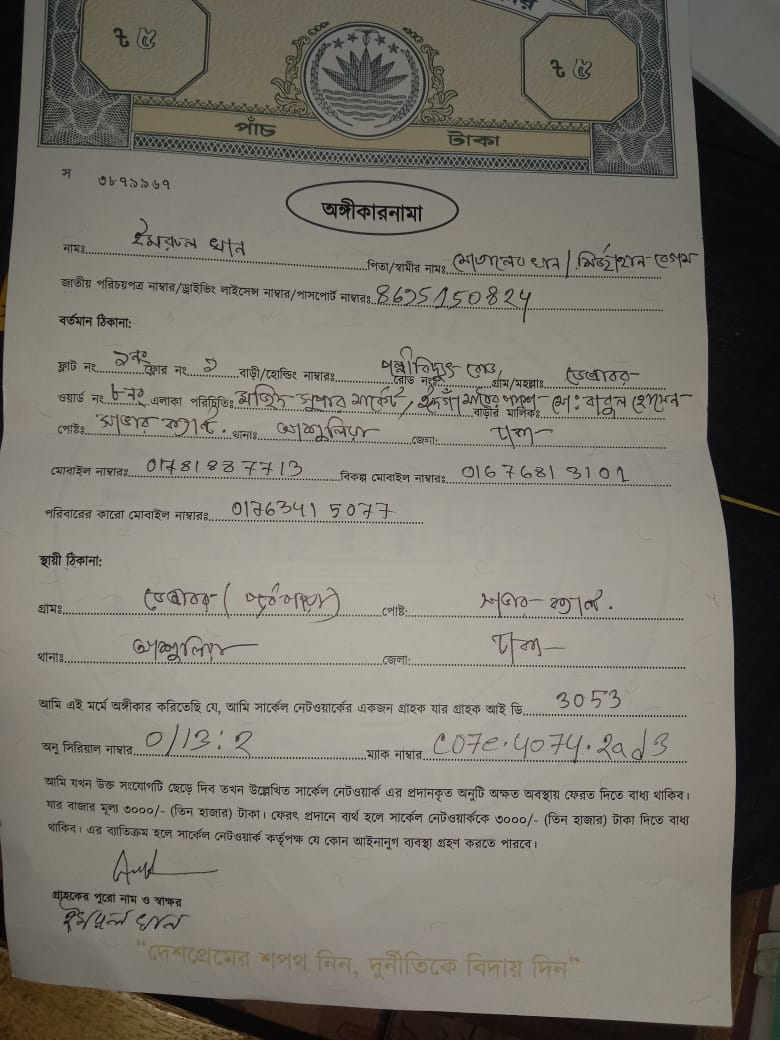 ৳ ৫
৳ ৫
পাঁচ টাকা
স ৩৮৭৯৯৬৭
অঙ্গীকারনামা
নামঃ ইমরুল খান পিতা/স্বামীর নামঃ খান / বেগম
জাতীয় পরিচয়পত্র নাম্বার/ড্রাইভিং লাইসেন্স নাম্বার/পাসপোর্ট নাম্বারঃ 8695150824
বর্তমান ঠিকানা:
ফ্লাট নং ফ্লোর নং ২ বাড়ী/হোল্ডিং নাম্বারঃ রোড নংঃ পল্লীবিদ্যুৎ রোড গ্রাম/মহল্লাঃ ডেন্ডাবর
ওয়ার্ড নং ৮নং এলাকা পরিচিতিঃ সুপার মার্কেট, ঈদগাঁ মাঠের পাশে বাড়ীর মালিকঃ মো: বাবুল হোসেন
পোষ্টঃ সাভার ক্যান্ট. থানাঃ আশুলিয়া জেলা: ঢাকা
মোবাইল নাম্বারঃ 01781837713 বিকল্প মোবাইল নাম্বারঃ 01676813101
পরিবারের কারো মোবাইল নাম্বারঃ 01763415077
স্থায়ী ঠিকানা:
গ্রামঃ ডেন্ডাবর ( ) পোষ্ট: সাভার ক্যান্ট.
থানাঃ আশুলিয়া জেলা: ঢাকা
আমি এই মর্মে অঙ্গীকার করিতেছি যে, আমি সার্কেল নেটওয়ার্কের একজন গ্রাহক যার গ্রাহক আই ডি 3053
অনু সিরিয়াল নাম্বার 0/13:2 ম্যাক নাম্বার C07e.4074.2ad3
আমি যখন উক্ত সংযোগটি ছেড়ে দিব তখন উল্লেখিত সার্কেল নেটওয়ার্ক এর প্রদানকৃত অনুটি অক্ষত অবস্থায় ফেরত দিতে বাধ্য থাকিব।
যার বাজার মূল্য ৩০০০/- (তিন হাজার) টাকা। ফেরৎ প্রদানে ব্যর্থ হলে সার্কেল নেটওয়ার্ককে ৩০০০/- (তিন হাজার) টাকা দিতে বাধ্য
থাকিব। এর ব্যতিক্রম হলে সার্কেল নেটওয়ার্ক কর্তৃপক্ষ যে কোন আইনানুগ ব্যবস্থা গ্রহণ করতে পারবে।
গ্রাহকের পুরো নাম ও স্বাক্ষর
ইমরুল খান
"দেশপ্রেমের শপথ নিন, দুর্নীতিকে বিদায় দিন"